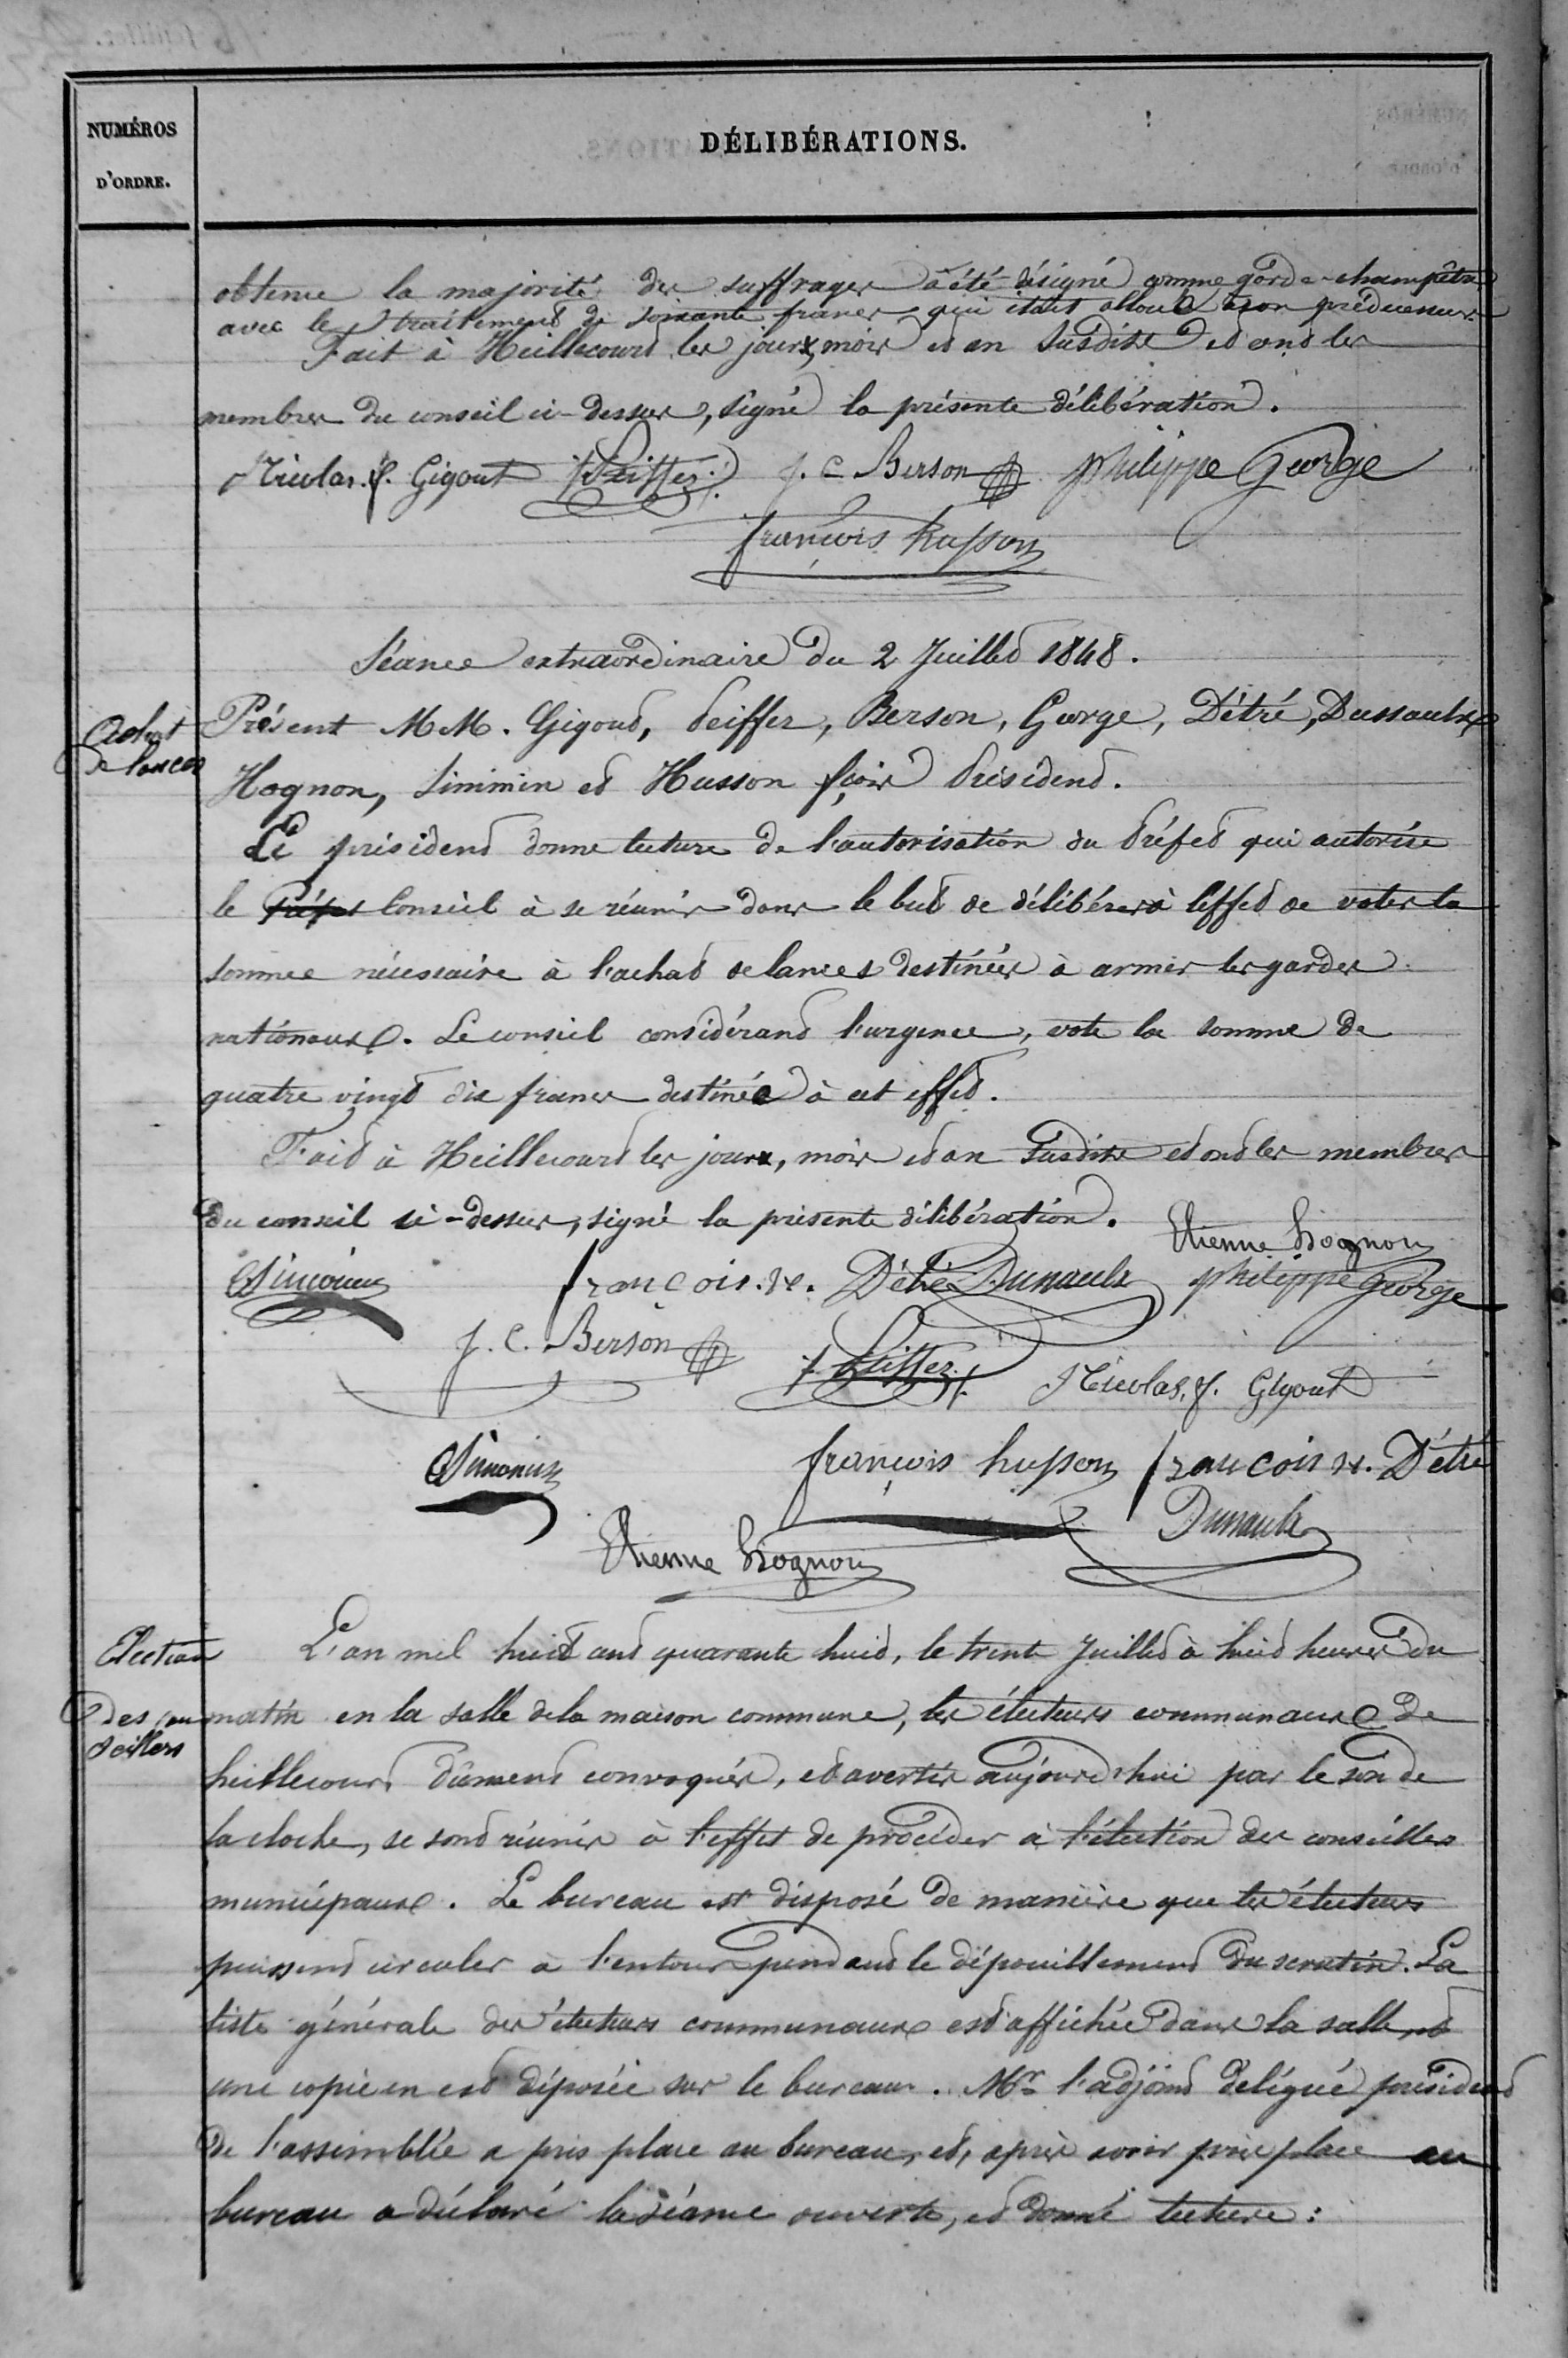 NUMÉROS
D'ORDRE.
DÉLIBÉRATIONS.
obtenu la majorité des suffrages a été désigné comme garde-champêtre
avec le traitement de soixante francs qui était alloué à son prédécesseur.
Fait à Heillecourt les jours, mois et an susdits et ont les
membres du conseil ci-dessus, signé la présente délibération.
Nicolas. f. Gigout Peiffer J. C Berson philippe George
françois husson
Séance extraordinaire du 2 Juillet 1848.
Achat
de lances
Présent MM. Gigout, Peiffer, Berson, George, Détré, Dussaulx
Hognon, Simmin et Husson fçois Président.
Le président donne lecture de l'autorisation du Préfet qui autorise
le Préfet Conseil à se réunir dans le but de délibérer à l'effet de voter la
somme nécessaire à l'achat de lances destinées à armer les gardes
nationaux. Le conseil considérant l'urgence, vote la somme de
quatre vingt dix francs destinée à cet effet.
Fait à Heillecourt les jours, mois et an susdits et ont les membres
du conseil ci-dessus, signé la présente délibération.
Etienne hognon
françois. x. Détré Dussaulx philippe George
J. C. Berson Peiffer Nicolas. f. Gigout
françois husson françois x. Détré
Dussaulx
Etienne hognon
Election
des con
seillers
L'an mil huit cent quarante huit, le trente Juillet à huit heures du
matin en la salle de la maison commune, les électeurs communaux de
heillecourt dûment convoqués, et avertis aujourd'hui par le son de
la cloche, se sont réunis à l'effet de procéder à l'élection des conseillers
municipaux. Le bureau est disposé de manière que les électeurs
puissent circuler à l'entour pendant le dépouillement du scrutin. La
liste générale des électeurs communaux est affichée dans la salle et
une copie en est déposée sur le bureau. Mr l'adjoint délégué président
de l'assemblée a pris place au bureau, et, après avoir pris place au
bureau a déclaré la séance ouverte, et donné lecture :